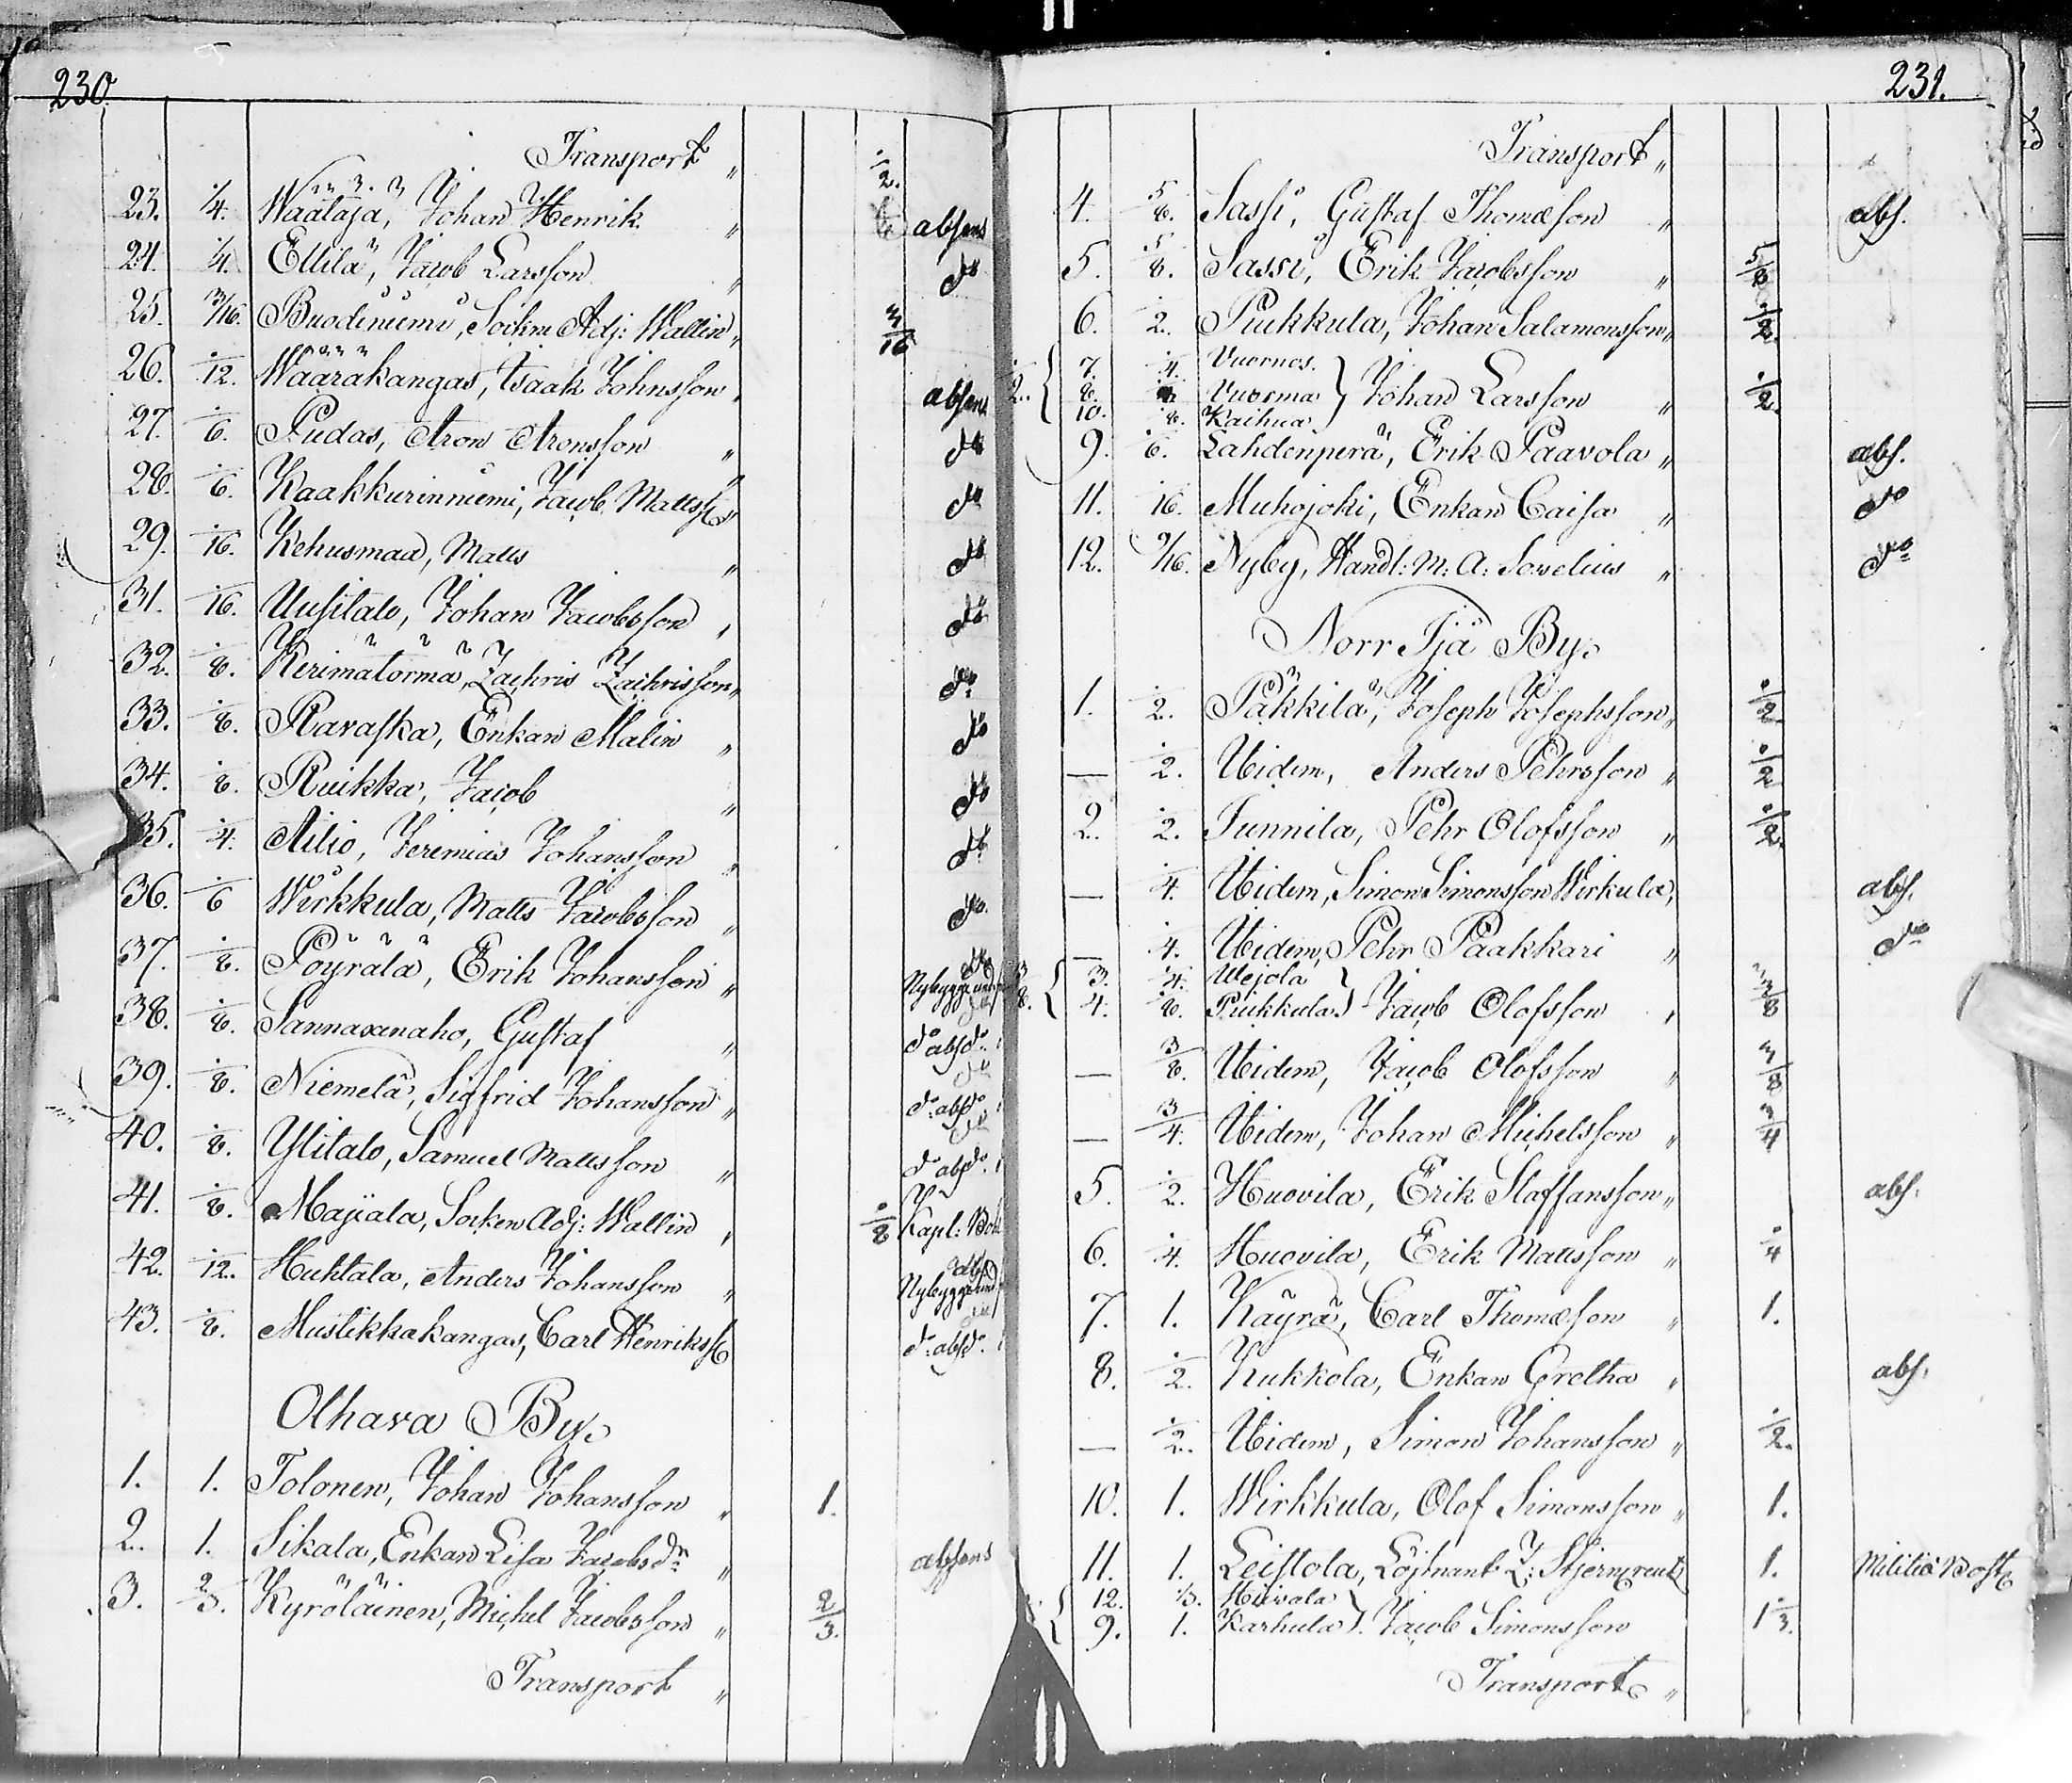 230.
Transport "
23. 1/4. Wäätäjä, Johan Henrik " 1/2. absens
24. 1/4. Ellilä, Jacob Larsson " do
25. 3/16. Buodeniemi, Sockne Adj: Wallin " 3/16
26. 1/12. Wääräkangas, Isaak Johnsson " absens
27. 1/6. Pudas, Aron Aronsson " do
28. 1/6. Kaakkurinniemi, Jacob Mattss " do
29. 1/16. Kehusmaa, Matts " do
31. 1/16. Uusitalo, Johan Jacobsson " do
32. 1/8. Kerimätörmä, Zachris Zachrisson " do
33. 1/8. Ravaska, Enkan Malin " do
34. 1/8. Ruikka, Jacob " do
35. 1/4. Ailio, Jeremias Johansson " do
36. 1/6 Wirkkula, Matts Jacobsson " do.
37. 1/8. Pöyrälä, Erik Johansson " do Nybygge
38. 1/8. Sannaxenaho, Gustaf " do abs do
39. 1/8. Niemelä, Sigfrid Johansson " do: abs do
40. 1/8. Ylitalo, Samuel Mattsson " do abs do.
41. 1/8. Majiala, Socken Adj: Wallin " 1/8 Kapl: Bol
42. 1/12. Huhtala, Anders Johansson " abs Nybygge
43. 1/8. Mustikkakangas, Carl Henrikss do: abs do.
Olhava By.
1. 1. Tolonen, Johan Johansson " 1.
2. 1. Sikala, Enkan Lisa Jacobsdr " absens
3. 2/3. Kyröläinen, Michel Jacobsson " 2/3.
Transport "
231.
Transport "
4. 5/8. Sassi, Gustaf Thomæson " abs.
5. 5/8. Sassi, Erik Jacobsson " 5/8
6. 1/2. Puikkula, Johan Salamonsson " 1/2.
7. 1/4. Vuornos.
1/2. { 8. Vuorma } Johan Larsson " 1/2.
10. 1/8. Kaihua
9. 1/6. Lahdenperä, Erik Paavola " abs.
11. 1/16. Muhojoki, Enkan Caisa " do
12. 9/16. Nyby, Handl: M: A: Sovelius " do
Norr Ijä By.
1. 1/2. Päkkilä, Joseph Josephsson " 1/2
— 1/2. Ibidem, Anders Pehrsson " 1/2
2. 1/2. Junnila, Pehr Olofsson " 1/2.
— 1/4. Ibidem, Simon Simonsson Wirkula, abs.
— 1/4. Ibidem, Pehr Paakkari " do
3. 1/4. Wejola
3/8. { 4. 1/8. Puikkula } Jacob Olofsson " 3/8
— 3/8. Ibidem, Jacob Olofsson " 3/8
— 3/4. Ibidem, Johan Michelsson " 3/4
5. 1/2. Huovila, Erik Staffansson " abs.
6. 1/4. Huovila, Erik Mattsson " 1/4
7. 1. Käyrä, Carl Thomæson " 1.
8. 1/2. Kukkola, Enkan Gretha " abs.
— 1/2. Ibidem, Simon Johansson " 1/2.
10. 1. Wirkkula, Olof Simonsson " 1.
11. 1. Leistola, Löjtnant Z: Stjerncreutz 1. Militiæ Bost
12. 1/3. Hiivala
9. 1. Karhula } Jacob Simonsson 1 1/3.
Transport "